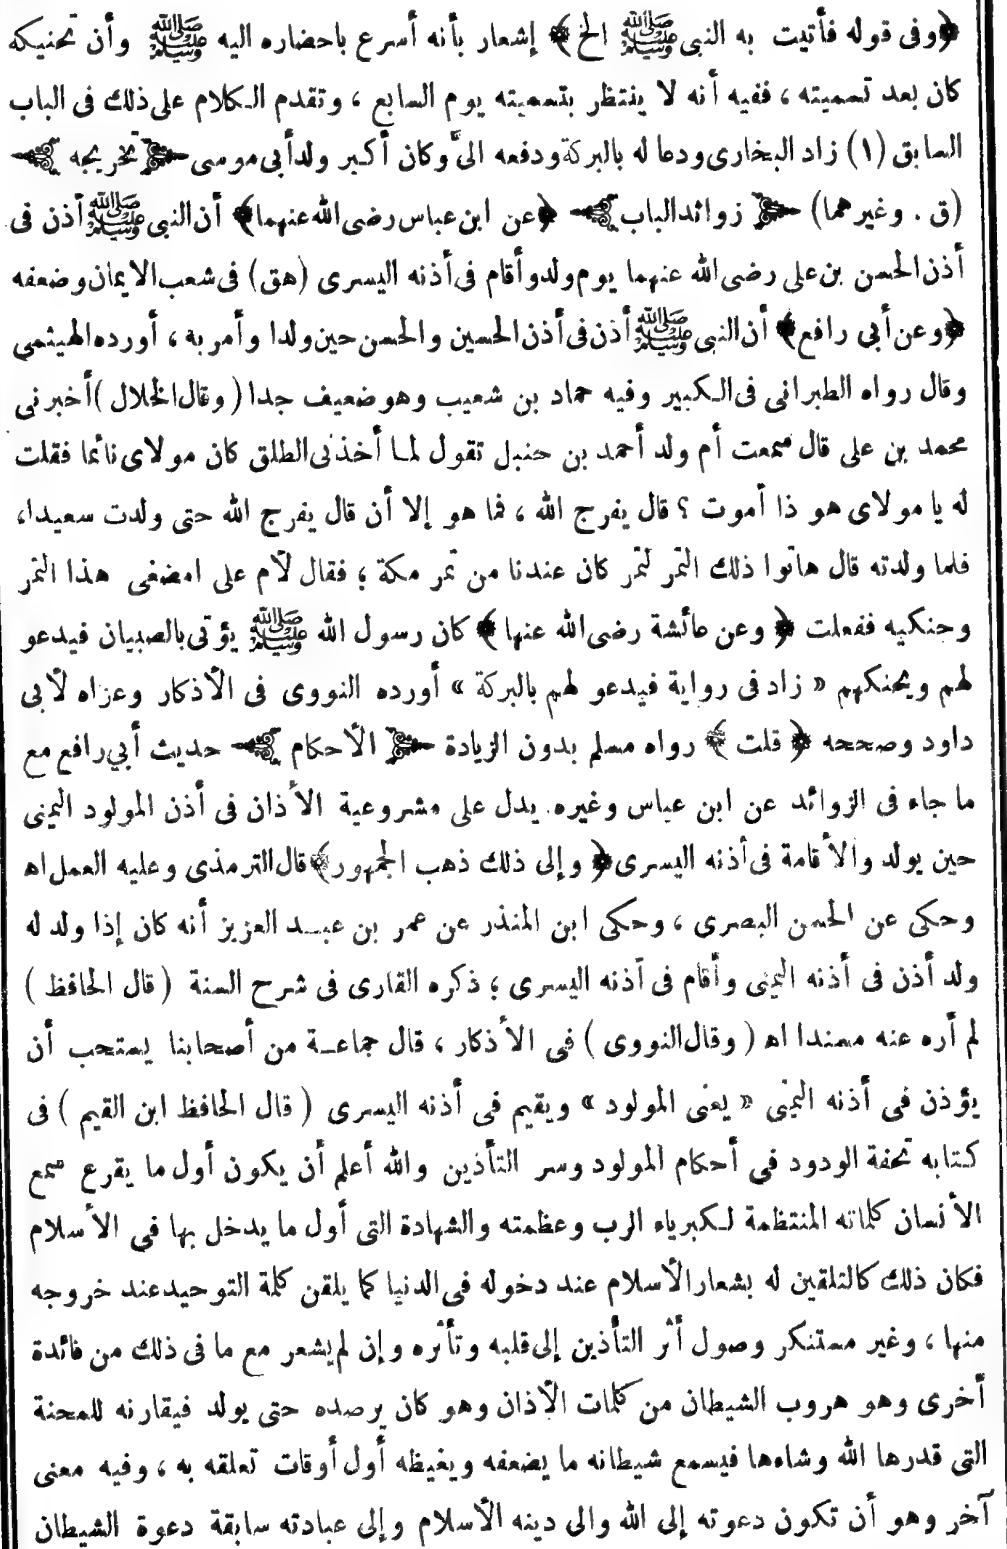 ﴿وفى قوله فأتيت به النبى ﷺ الخ﴾ إشعار بأنه أسرع باحضاره اليه ﷺ وأن تحنيكه
كان بعد تسميته ، ففيه أنه لا ينتظر بتسميته يوم السابع ، وتقدم الكلام على ذلك فى الباب
السابق (١) زاد البخارى ودعا له بالبركة ودفعه الىّ وكان أكبر ولد أبى موسى ﴿تخريجه﴾
(ق . وغيرهما) ﴿زوائد الباب﴾ ﴿عن ابن عباس رضى الله عنهما﴾ أن النبى ﷺ أذن فى
أذن الحسن بن على رضى الله عنهما يوم ولد وأقام فى أذنه اليسرى (هق) فى شعب الايمان وضعفه
﴿وعن أبى رافع﴾ أن النبى ﷺ أذن فى أذن الحسين والحسن حين ولدا وأمر به ، أورده الهيثمى
وقال رواه الطبرانى فى الكبير وفيه حماد بن شعيب وهو ضعيف جدا (وقال الخلال) أخبرنى
محمد بن على قال سمعت أم ولد أحمد بن حنبل تقول لما أخذنى الطلق كان مولاى نائما فقلت
له يا مولاى هو ذا أموت ؟ قال يفرج الله ، فما هو إلا أن قال يفرج الله حتى ولدت سعيدا،
فلما ولدته قال هاتوا ذلك التمر لتمر كان عندنا من تمر مكة ؛ فقال لأم على امضغى هذا التمر
وحنكيه ففعلت ﴿وعن عائشة رضى الله عنها﴾ كان رسول الله ﷺ يؤتى بالصبيان فيدعو
لهم ويحنكهم « زاد فى رواية فيدعو لهم بالبركة » أورده النووى فى الأذكار وعزاه لأبى
داود وصححه ﴿قلت﴾ رواه مسلم بدون الزيادة ﴿الأحكام﴾ حديث أبي رافع مع
ما جاء فى الزوائد عن ابن عباس وغيره يدل على مشروعية الأذان فى أذن المولود اليمنى
حين يولد والأقامة فى أذنه اليسرى ﴿وإلى ذلك ذهب الجمهور﴾ قال الترمذى وعليه العمل اه
وحكى عن الحسن البصرى ، وحكى ابن المنذر عن عمر بن عبد العزيز أنه كان إذا ولد له
ولد أذن فى أذنه اليمنى وأقام فى أذنه اليسرى ؛ ذكره القارى فى شرح السنة (قال الحافظ)
لم أره عنه مسندا اه (وقال النووى) فى الأذكار ، قال جماعة من أصحابنا يستحب أن
يؤذن فى أذنه اليمنى « يعنى المولود » ويقيم فى أذنه اليسرى (قال الحافظ ابن القيم) فى
كتابه تحفة الودود فى أحكام المولود وسر التأذين والله أعلم أن يكون أول ما يقرع سمع
الأنسان كلماته المنتظمة لكبرياء الرب وعظمته والشهادة التى أول ما يدخل بها فى الأسلام
فكان ذلك كالتلقين له بشعار الأسلام عند دخوله فى الدنيا كما يلقن كلمة التوحيد عند خروجه
منها ، وغير مستنكر وصول أثر التأذين إلى قلبه وتأثره وإن لم يشعر مع ما فى ذلك من فائدة
أخرى وهو هروب الشيطان من كلمات الأذان وهو كان يرصده حتى يولد فيقارنه للمحنة
التى قدرها الله وشاءها فيسمع شيطانه ما يضعفه ويغيظه أول أوقات تعلقه به ، وفيه معنى
آخر وهو أن تكون دعوته إلى الله والى دينه الأسلام وإلى عبادته سابقة دعوة الشيطان